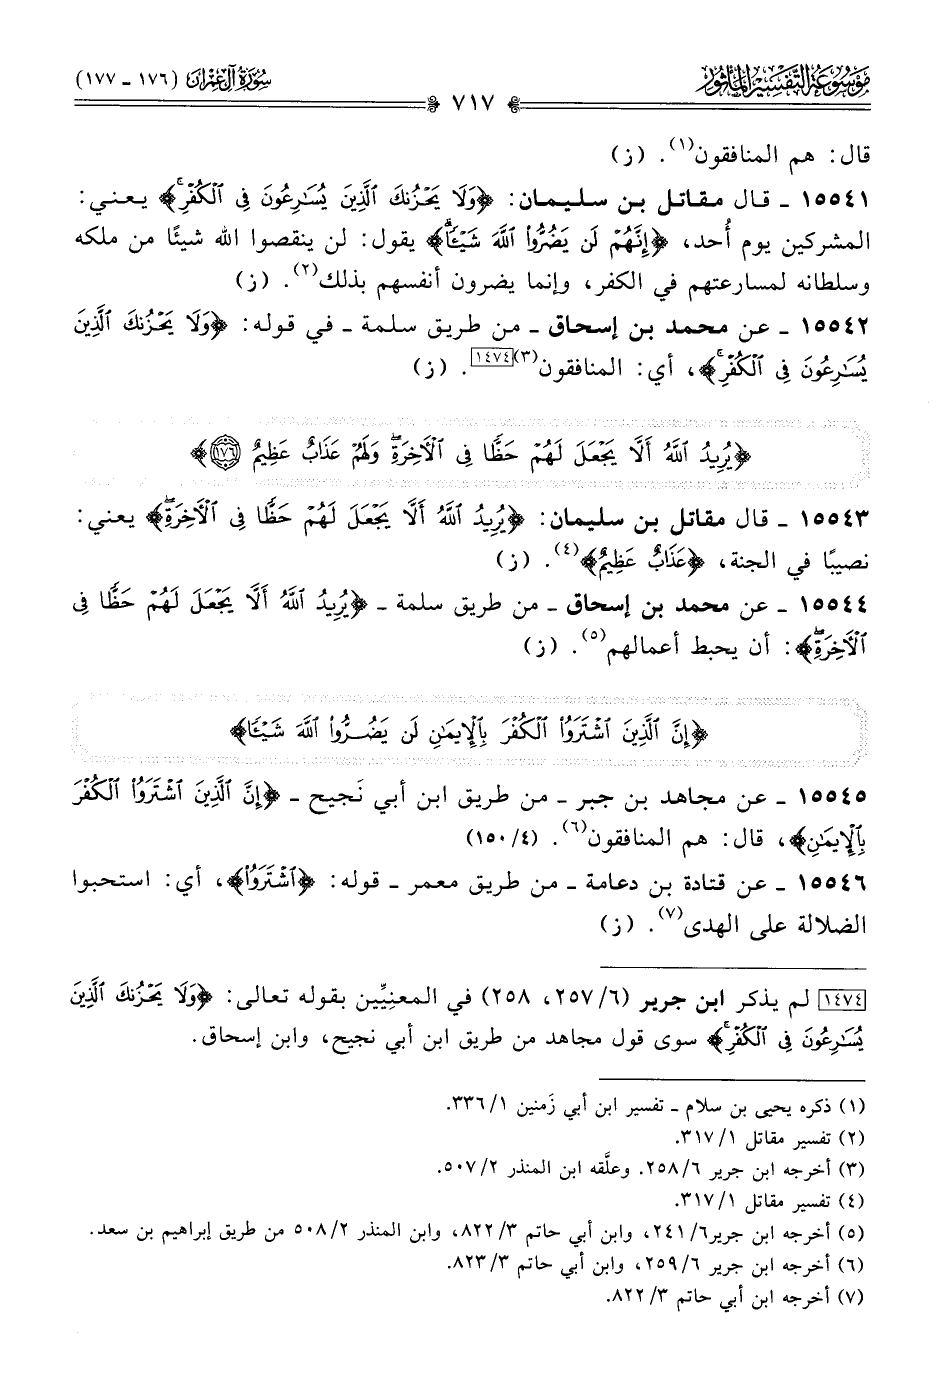 موسوعة التفسير المأثور
سورة آل عمران (١٧٦ ـ ١٧٧)
٧١٧
قال: هم المنافقون(١). (ز)
١٥٥٤١ ـ قال مقاتل بن سليمان: ﴿وَلَا يَحْزُنكَ ٱلَّذِينَ يُسَٰرِعُونَ فِى ٱلْكُفْرِۚ﴾ يعني:
المشركين يوم أُحد، ﴿إِنَّهُمْ لَن يَضُرُّوا۟ ٱللَّهَ شَيْـًٔاۗ﴾ يقول: لن ينقصوا الله شيئًا من ملكه
وسلطانه لمسارعتهم في الكفر، وإنما يضرون أنفسهم بذلك(٢). (ز)
١٥٥٤٢ ـ عن محمد بن إسحاق ـ من طريق سلمة ـ في قوله: ﴿وَلَا يَحْزُنكَ ٱلَّذِينَ
يُسَٰرِعُونَ فِى ٱلْكُفْرِۚ﴾، أي: المنافقون(٣)[١٤٧٤]. (ز)
﴿يُرِيدُ ٱللَّهُ أَلَّا يَجْعَلَ لَهُمْ حَظًّا فِى ٱلْءَاخِرَةِۖ وَلَهُمْ عَذَابٌ عَظِيمٌ ١٧٦﴾
١٥٥٤٣ ـ قال مقاتل بن سليمان: ﴿يُرِيدُ ٱللَّهُ أَلَّا يَجْعَلَ لَهُمْ حَظًّا فِى ٱلْءَاخِرَةِۖ﴾ يعني:
نصيبًا في الجنة، ﴿عَذَابٌ عَظِيمٌ﴾(٤). (ز)
١٥٥٤٤ ـ عن محمد بن إسحاق ـ من طريق سلمة ـ ﴿يُرِيدُ ٱللَّهُ أَلَّا يَجْعَلَ لَهُمْ حَظًّا فِى
ٱلْءَاخِرَةِۖ﴾: أن يحبط أعمالهم(٥). (ز)
﴿إِنَّ ٱلَّذِينَ ٱشْتَرَوُا۟ ٱلْكُفْرَ بِٱلْإِيمَٰنِ لَن يَضُرُّوا۟ ٱللَّهَ شَيْـًٔا﴾
١٥٥٤٥ ـ عن مجاهد بن جبر ـ من طريق ابن أبي نَجيح ـ ﴿إِنَّ ٱلَّذِينَ ٱشْتَرَوُا۟ ٱلْكُفْرَ
بِٱلْإِيمَٰنِ﴾، قال: هم المنافقون(٦). (٤/ ١٥٠)
١٥٥٤٦ ـ عن قتادة بن دعامة ـ من طريق معمر ـ قوله: ﴿ٱشْتَرَوُا۟﴾، أي: استحبوا
الضلالة على الهدى(٧). (ز)
[١٤٧٤] لم يذكر ابن جرير (٦/ ٢٥٧، ٢٥٨) في المعنِيِّين بقوله تعالى: ﴿وَلَا يَحْزُنكَ ٱلَّذِينَ
يُسَٰرِعُونَ فِى ٱلْكُفْرِۚ﴾ سوى قول مجاهد من طريق ابن أبي نجيح، وابن إسحاق.
(١) ذكره يحيى بن سلام ـ تفسير ابن أبي زَمنين ١/ ٣٣٦.
(٢) تفسير مقاتل ١/ ٣١٧.
(٣) أخرجه ابن جرير ٦/ ٢٥٨. وعلَّقه ابن المنذر ٢/ ٥٠٧.
(٤) تفسير مقاتل ١/ ٣١٧.
(٥) أخرجه ابن جرير٦/ ٢٤١، وابن أبي حاتم ٣/ ٨٢٢، وابن المنذر ٢/ ٥٠٨ من طريق إبراهيم بن سعد.
(٦) أخرجه ابن جرير ٦/ ٢٥٩، وابن أبي حاتم ٣/ ٨٢٣.
(٧) أخرجه ابن أبي حاتم ٣/ ٨٢٢.